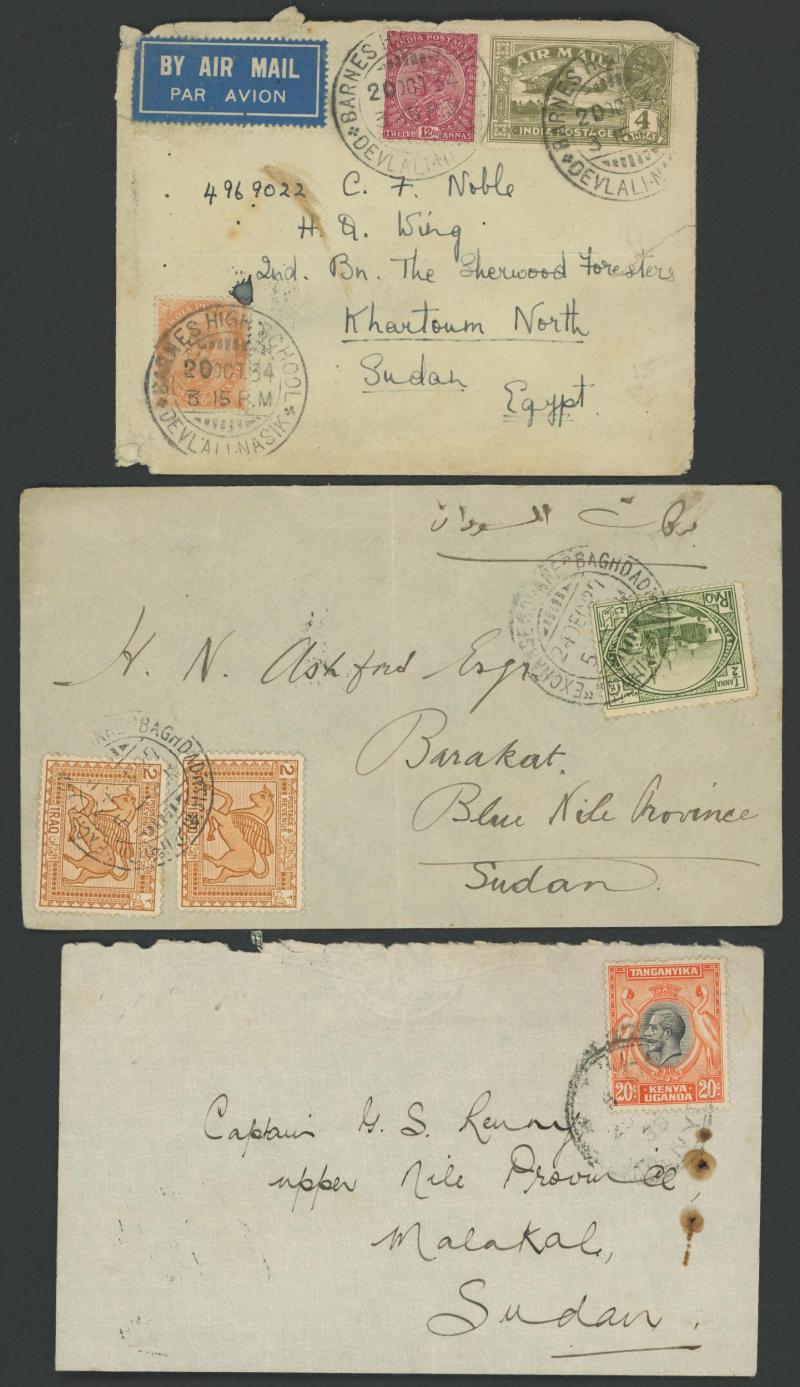 BY AIR MAIL
PAR AVION
INDIA POSTAGE
TWELVE 12 As ANNAS
AIR MAIL
INDIA POSTAGE
4 ANNAS
BARNES
20 OCT 34
DEVLALI-N
BARNES
20
3 15
DEVLALI-N
4969022 C. F. Noble
H. Q. Wing
2nd. Bn. The Sherwood Foresters
Khartoum North
Sudan
Egypt.
BARNES HIGH SCHOOL
20 OCT 34
3 15 P.M
DEVLALI-NASIK
السودان
EXCHANGE SQUARE BAGHDAD
24 DEC
5
IRAQ
½ ANNA
H. N. Ashford Esqr
Barakat.
Blue Nile Province
Sudan.
BAGHDAD
2
IRAQ
2
POSTAGE & REVENUE
TANGANYIKA
20c 20c
KENYA
UGANDA
Captain G. S. Renny
upper Nile Province,
Malakal,
Sudan.